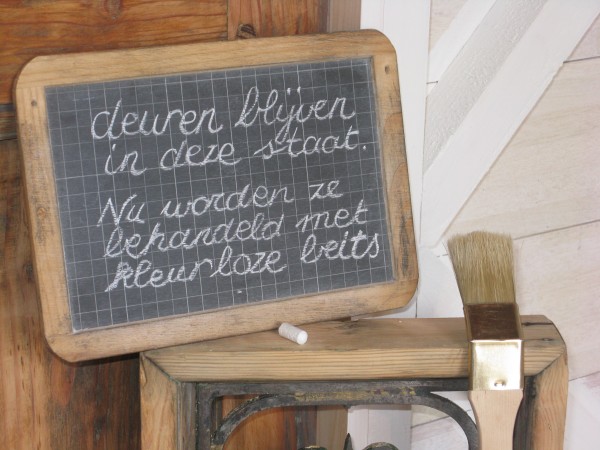 deuren blijven
in deze staat.
Nu worden ze
behandeld met
kleurloze beits